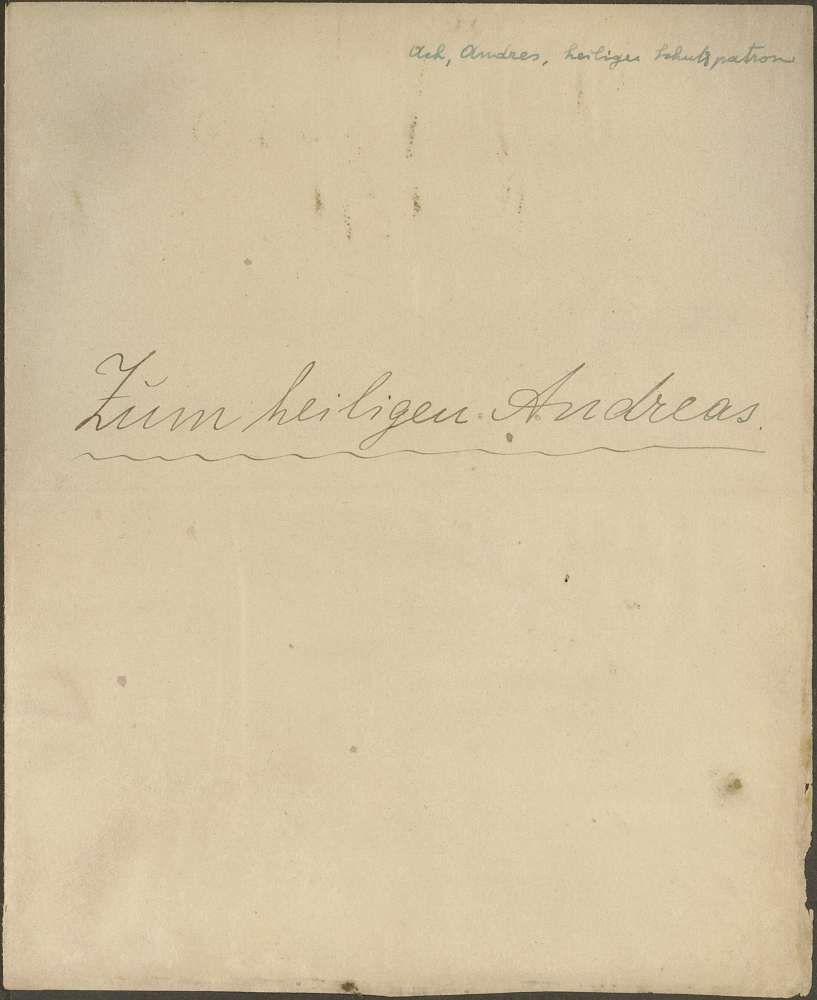 Ach, Andres, heiliger Schutzpatron
Zum heiligen Andreas.